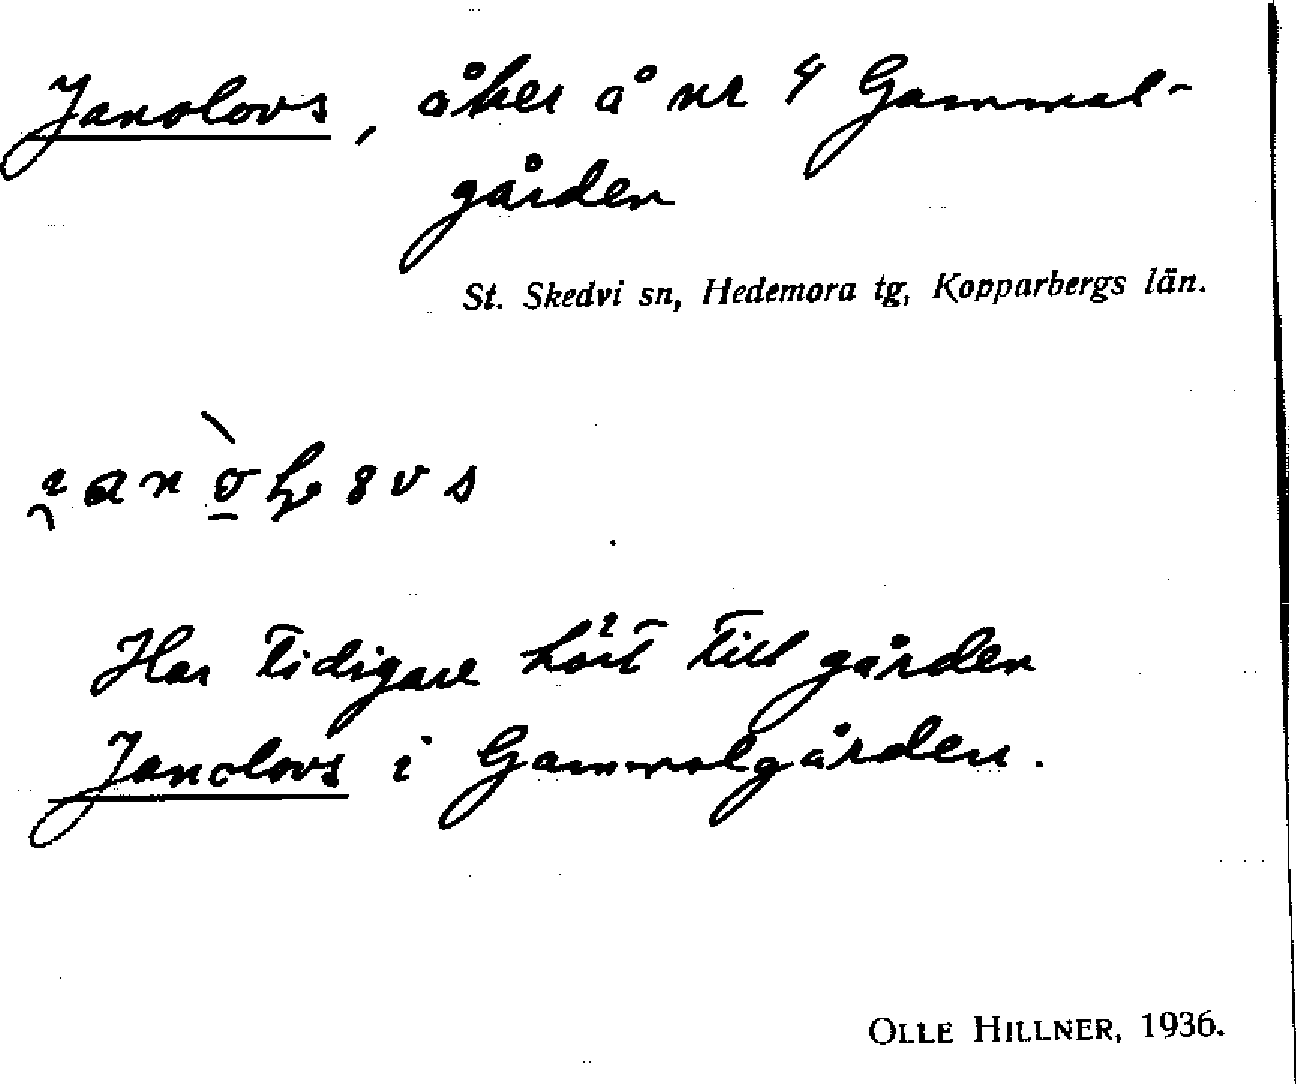 Janolovs, åker å nr 4 Gammal-
gården
St. Skedvi sn, Hedemora tg, Kopparbergs län.
Har tidigare hört till gården
Janolovs i Gammalgården.
OLLE HILLNER, 1936.